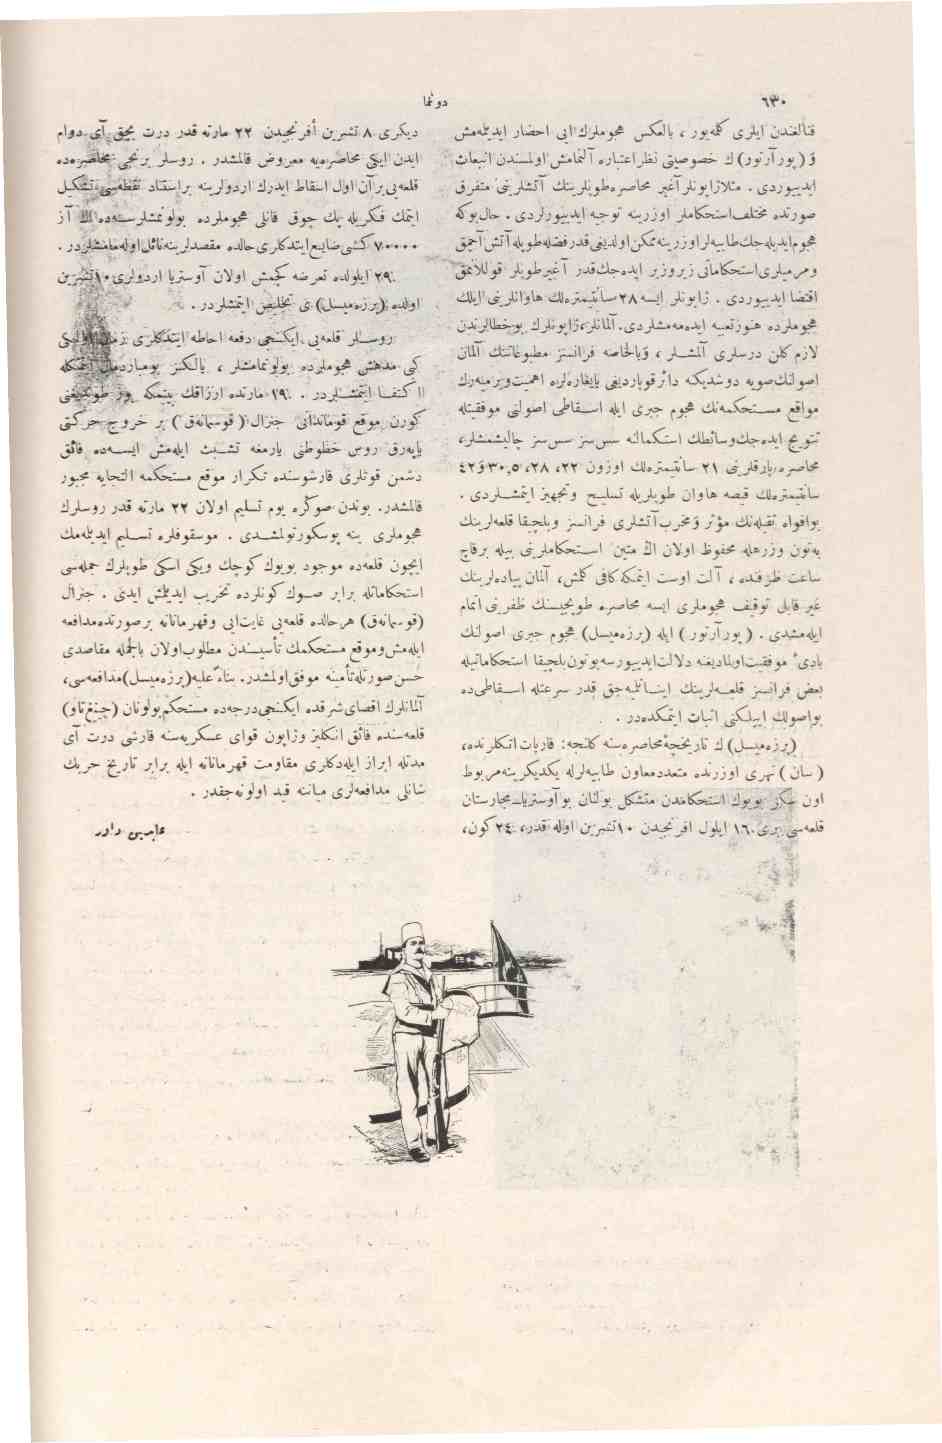 ٦٣٠
دوننما
قنالغندن ایلری کله‌یور ، بالعکس هجوملرك ایی احضار ایدیله‌مش
و (پور آرتور) ك خصوصیتی نظر اعتباره آلنمامش اولمسندن انبعاث
ایدییوردی . مثلا ژاپونلر آغیر محاصره طوپلرینك آتشلرینی متفرق
صورتده مختلف استحکاملر اوزرینه توجیه ایدییورلردی . حال بوکه
هجوم ایدیله‌جك طابیه‌لر اوزرینه ممکن اولدیغی قدر فضله طوپله آتش آچمق
ومرمیلری استحکاماتی زیر وزبر ایده‌جك قدر آغیر طوپلر قوللانمق
اقتضا ایدییوردی . ژاپونلر ایسه ٢٨ سانتیمتره‌لك هاوانلرینی ایلك
هجوملرده هنوز تعبیه ایده‌مه‌مشلردی. آلمانلر، ژاپونلرك بو خطالرندن
لازم کلن درسلری آلمشلر ، وبالخاصه فرانسز مطبوعاتنك آلمان
اصولنك صویه دوشدیکنه دائر قوپاردیغی یایغاره‌لره اهمیت ویرمیه‌رك
مواقع مستحکمه‌نك هجوم جبری ایله اسقاطی اصولنی موفقیتله
تتویج ایده‌جك وسائطك استکمالنه سس سز سس سز چالیشمشلر،
محاصره پارقلرینی ٢١ سانتیمتره‌لك اوزون ٢٢، ٢٨، ٣٠،٥ و ٤٢
سانتیمتره‌لك قیصه هاوان طوپلریله تسلیح وتجهیز ایتمشلردی .
بو افواه ثقیله‌نك مؤثر و مخرب آتشلری فرانسز وبلجیقا قلعه‌لرینك
بتون وزرهله محفوظ اولان اك متین استحکاملرینی بیله برقاچ
ساعت ظرفنده ، آلت اوست ایتمکه کافی کلمش، آلمان پیاده‌لرینك
غیر قابل توقیف هجوملری ایسه محاصره طوپجیسنك ظفرینی اتمام
ایله‌مشدی . (پور آرتور) ایله (پرزه‌میسل) هجوم جبری اصولنك
بادیٔ موفقیت اولمادیغنه دلالت ایدییورسه بوتون بلجیقا استحکاماتیله
بعض فرانسز قلعه‌لرینك اینانلمیه‌جق قدر سرعتله اسقاطی ده
بو اصولك اییلکنی اثبات ایتمکده‌در .
(پرزه‌میسل) ك تاریخچهٔ محاصره‌سنه کلنجه: قارپات اتکلرنده،
(سان) نهری اوزرنده متعدد معاون طابیه‌لرله یکدیکرینه مربوط
اون سکز بویوك استحکامدن متشکل بولنان بو آوستریا – مجارستان
قلعه‌سی بری ١٦ ایلول افرنجیدن ١٠ تشرین اوله قدر، ٢٤ کون،
دیکری ٨ تشرین افرنجیدن ٢٢ مارته قدر درت بچق آی دوام
ایدن ایکی محاصره‌یه معروض قالمشدر . روسلر برنجی محاصره‌ده
قلعه‌یی بر آن اول اسقاط ایدرك اردولرینه بر استناد نقطه‌سی تشکیل
ایتمك فکریله پك چوق قانلی هجوملرده بولونمشلرسه‌ده اك آز
٧٠٠٠٠ کشی ضایع ایتدکلری حالده مقصدلرینه نائل اوله‌مامشلردر .
٢٩ ایلولده تعرضه کچمش اولان آوستریا اردولری ١٠ تشرین
اولده (پرزه‌میسل) ی تخلیص ایتمشلردر .
روسلر قلعه‌یی ایکنجی دفعه احاطه ایتدکلری زمان اولکی
کبی مدهش هجوملرده بولونمامشلر ، یالکز بومباردمان ایتمکله
اکتفا ایتمشلردر . ١٩ مارتده ارزاقك بیتمکه یوز طوتدیغنی
کورن موقع قوماندانی جنرال (قوسمانه‌ق) بر خروج حرکتی
یاپه‌رق روس خطوطنی یارمغه تشبث ایله‌مش ایسه‌ده فائق
دشمن قوتلری قارشوسنده تکرار موقع مستحکمه التجایه مجبور
قالمشدر. بوندن صوکره یوم تسلیم اولان ٢٢ مارته قدر روسلرك
هجوملری ینه پوسکورتولمشدی . موسقوفلره تسلیم ایدیلمه‌مك
ایچون قلعه‌ده موجود بویوك کوچك ویکی اسکی طوپلرك جمله‌سی
استحکاماتله برابر صوك کونلرده تخریب ایدیلمش ایدی . جنرال
(قوسمانه‌ق) هر حالده قلعه‌یی غایت ایی وقهرمانانه بر صورتده مدافعه
ایله‌مش وموقع مستحکمك تأسیسندن مطلوب اولان بالجمله مقاصدی
حسن صورتله تأمینه موفق اولمشدر. بناءً علیه (پرزه‌میسل) مدافعه‌سی،
آلمانلرك اقصای شرقده ایکنجی درجه‌ده مستحکم بولونان (چینغ‌تاو)
قلعه‌سنده فائق انکلیز وژاپون قوای عسکریه‌سنه قارشی درت آی
مدتله ابراز ایله‌دکلری مقاومت قهرمانانه ایله برابر تاریخ حربك
شانلی مدافعه‌لری میاننه قید اولونه‌جقدر .
عابدین داور